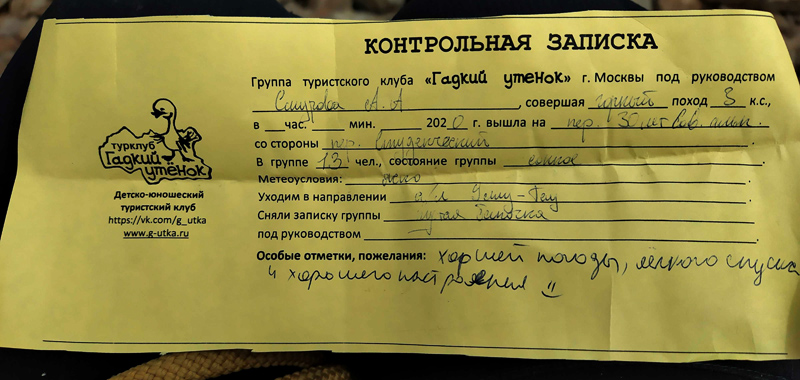 КОНТРОЛЬНАЯ ЗАПИСКА
Группа туристского клуба «Гадкий утенок» г. Москвы под руководством
А. А , совершая горный поход 3 к.с.,
в ___час. ____ мин. 2020 г. вышла на пер. 30 лет Сов. альп.
со стороны Студенческий
В группе 13 чел., состояние группы
Метеоусловия: ясно
Уходим в направлении
Сняли записку группы
под руководством
Особые отметки, пожелания: хорошей погоды, лёгкого спуска
и хорошего настроения
ТУРКЛУБ
ГАДКИЙ
УТЁНОК
Детско-юношеский
туристский клуб
https://vk.com/g_utka
www.g-utka.ru